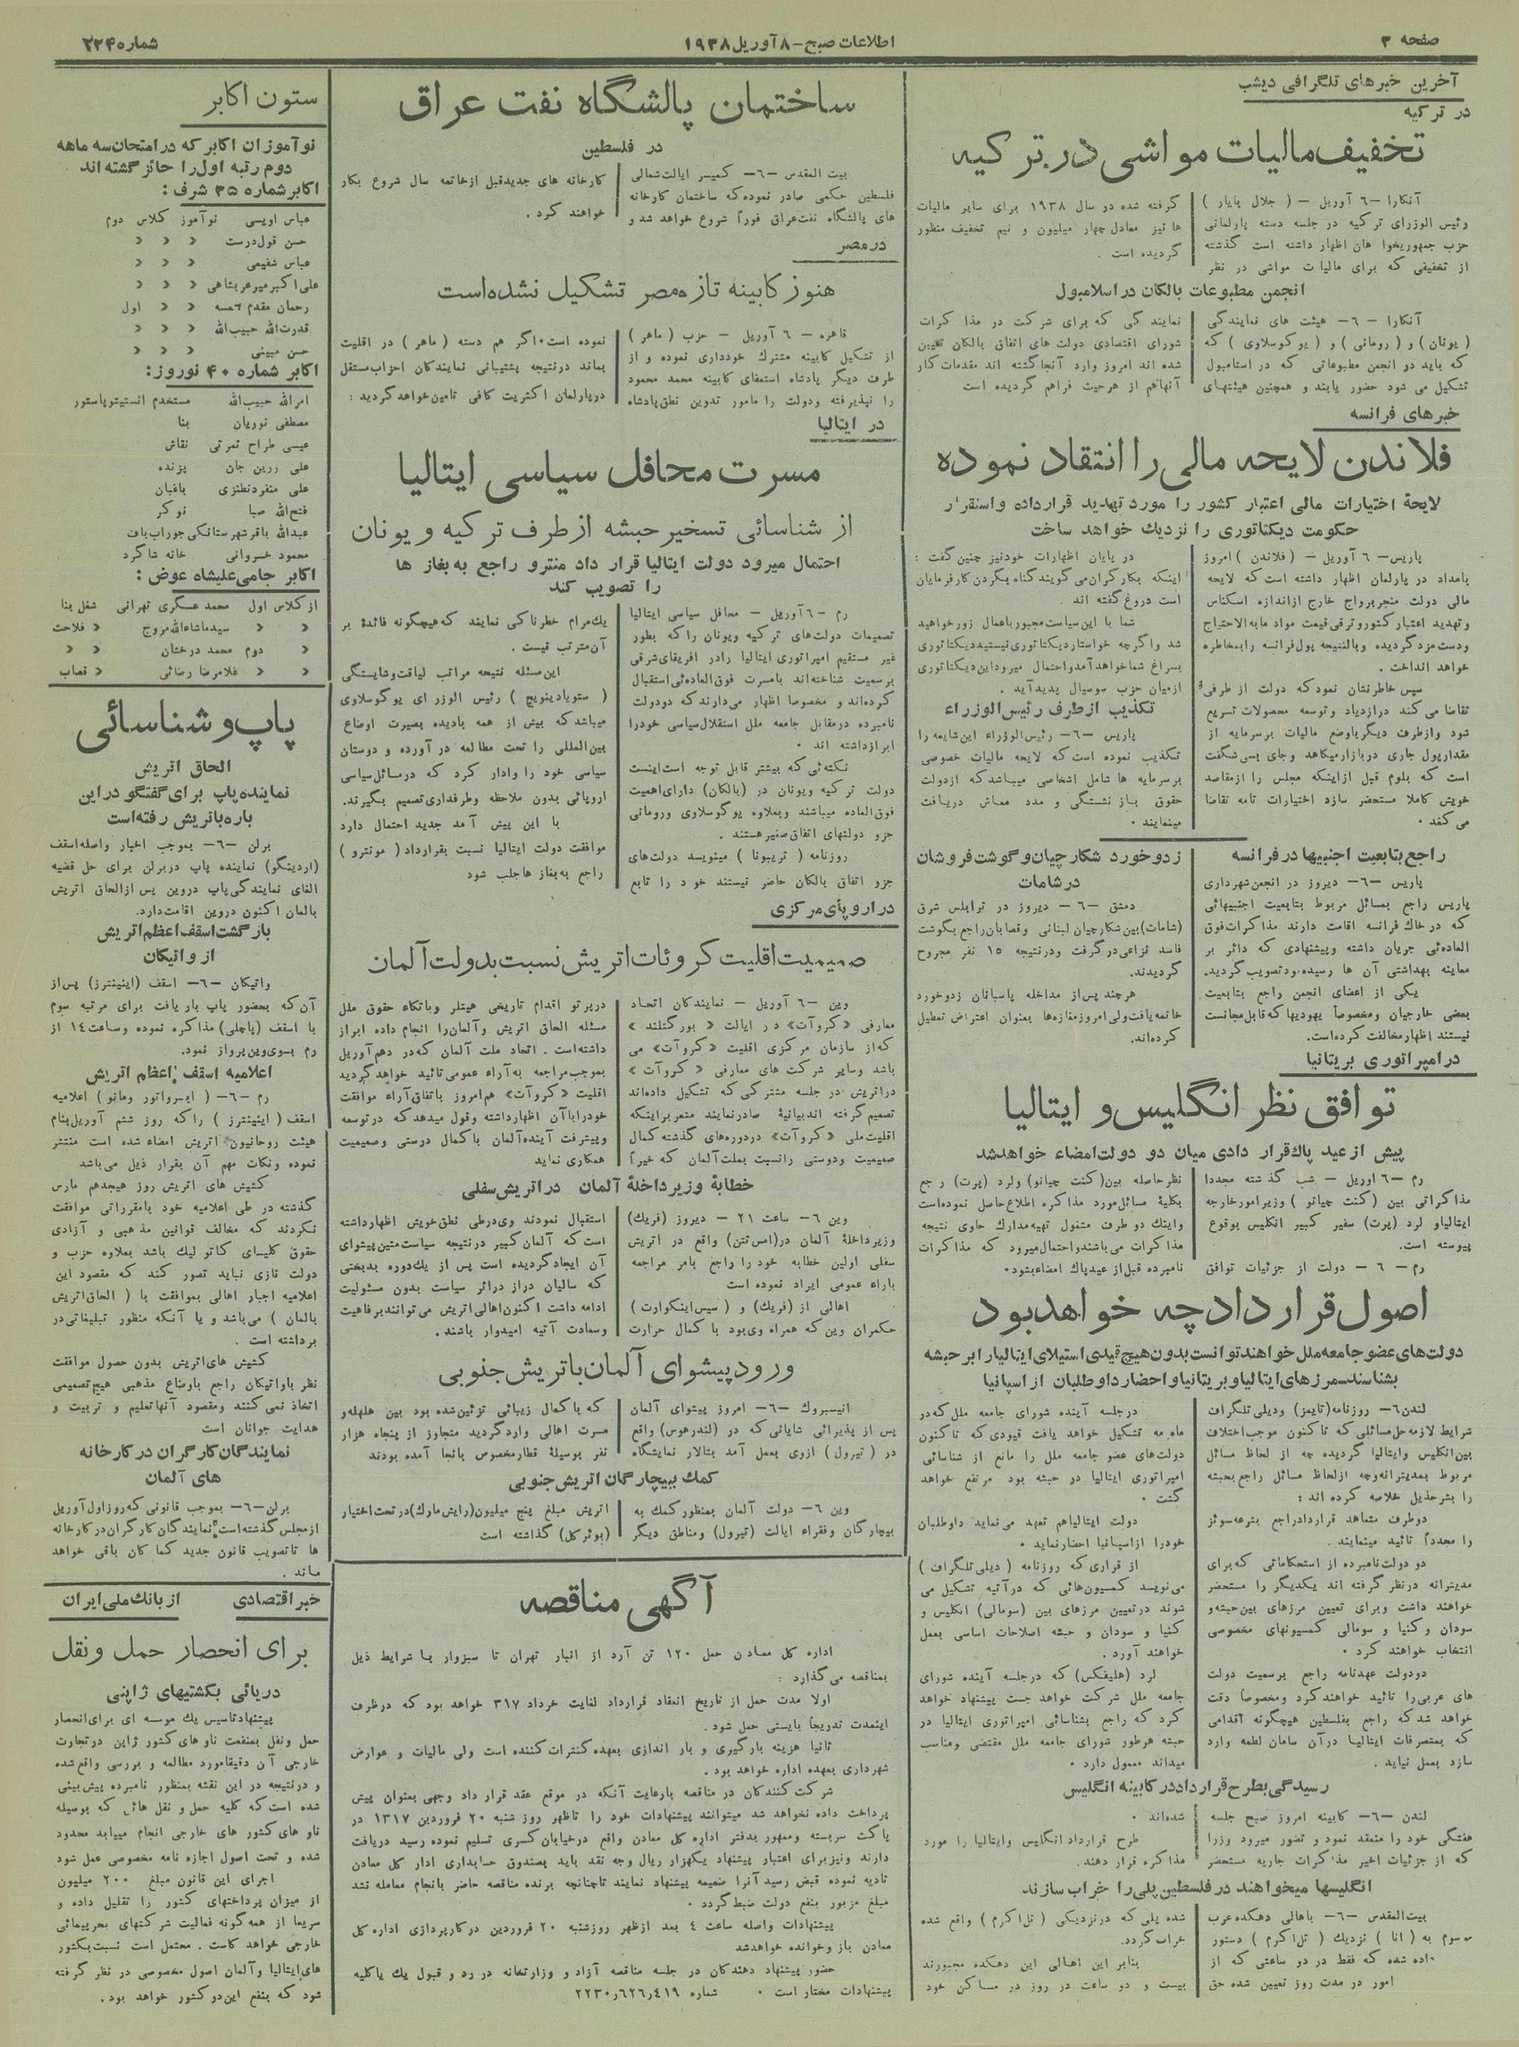 صفحه ۳
اطلاعات صبح - ۸ آوریل ۱۹۳۸
شماره ۲۲۴
آخرین خبرهای تلگرافی دیشب
در ترکیه
تخفیف مالیات مواشی در ترکیه
آنکارا - ۶ آوریل - ( جلال بایار )
رئیس الوزرای ترکیه در جلسه دسته پارلمانی
حزب جمهوریخواهان اظهار داشته است گذشته
از تخفیفی که برای مالیات مواشی در نظر
گرفته شده در سال ۱۹۳۸ برای سایر مالیات
ها نیز معادل چهار میلیون و نیم تخفیف منظور
گردیده است .
انجمن مطبوعات بالکان در اسلامبول
آنکارا -۶- هیئت های نمایندگی
( یونان ) و ( رومانی ) و ( یوگوسلاوی ) که
که باید دو انجمن مطبوعاتی که در استامبول
تشکیل می شود حضور یابند و همچنین هیئتهای
نمایندگی که برای شرکت در مذاکرات
شورای اقتصادی دولت های اتفاق بالکان تعیین
شده اند امروز وارد آنجا گشته اند مقدمات کار
آنها هم از هر حیث فراهم گردیده است
خبرهای فرانسه
فلاندن لایحه مالی را انتقاد نموده
لایحهٔ اختیارات مالی اعتبار کشور را مورد تهدید قرار داده و استقرار
حکومت دیکتاتوری را نزدیک خواهد ساخت
پاریس - ۶ آوریل - ( فلاندن ) امروز
بامداد در پارلمان اظهار داشته است که لایحه
مالی دولت منجر برواج خارج از اندازه اسکناس
و تهدید اعتبار کشور و ترقی قیمت مواد مابه الاحتیاج
و دست مزد گردیده و بالنتیجه پول فرانسه را بمخاطره
خواهد انداخت .
سپس خاطر نشان نمود که دولت از طرفی
تقاضا می کند در ازدیاد و توسعه محصولات تسریع
شود و از طرف دیگر با وضع مالیات بر سرمایه از
مقدار پول جاری در بازار میکاهد و جای بسی شگفت
است که بلوم قبل از اینکه مجلس را از مقاصد
خویش کاملا مستحضر سازد اختیارات تامه تقاضا
می کند .
در پایان اظهارات خود نیز چنین گفت :
اینکه بکارگران می گویند گناه بگردن کارفرمایان
است دروغ گفته اند .
شما با این سیاست مجبور باعمال زور خواهید
شد و اگر چه خواستار دیکتاتوری نیستید دیکتاتوری
بسراغ شما خواهد آمد و احتمال میرود این دیکتاتوری
از میان حزب سوسیال پدید آید .
تکذیب از طرف رئیس الوزراء
پاریس -۶- رئیس الوزراء این شایعه را
تکذیب نموده است که لایحه مالیات خصوصی
بر سرمایه ها شامل اشخاصی میباشد که از دولت
حقوق بازنشستگی و مدد معاش دریافت
مینمایند .
راجع بتابعیت اجنبیها در فرانسه
پاریس -۶- دیروز در انجمن شهرداری
پاریس راجع بمسائل مربوط بتابعیت اجنبیهائی
که در خاک فرانسه اقامت دارند مذاکرات فوق
العاده ئی جریان داشته و پیشنهادی که دائر بر
معاینه بهداشتی آن ها رسیده بود تصویب گردید.
یکی از اعضای انجمن راجع بتابعیت
بعضی خارجیان و مخصوصاً یهودیها که قابل مجانست
نیستند اظهار مخالفت کرده است.
زد و خورد شکارچیان و گوشت فروشان
در شامات
دمشق -۶- دیروز در ترابلس شرق
(شامات) بین شکارچیان لبنانی و قصابان راجع بگوشت
فاسد نزاعی در گرفت و در نتیجه ۱۵ نفر مجروح
گردیدند.
هر چند پس از مداخله پاسبانان زد و خورد
خاتمه یافت ولی امروز مغازه ها بعنوان اعتراض تعطیل
کرده اند.
در امپراتوری بریتانیا
توافق نظر انگلیس و ایتالیا
پیش از عید پاک قرار دادی میان دو دولت امضاء خواهد شد
رم - ۶ آوریل - شب گذشته مجددا
مذاکراتی بین ( کنت چیانو ) وزیر امور خارجه
ایتالیا و لرد (پرت) سفیر کبیر انگلیس بوقوع
پیوسته است.
رم - ۶ - دولت از جزئیات توافق
نظر حاصله بین (کنت چیانو) و لرد (پرت) رجع
بکلیهٔ مسائل مورد مذاکره اطلاع حاصل نموده است
و اینک دو طرف مشغول تهیه مدارک حاوی نتیجه
مذاکرات می باشند و احتمال میرود که مذاکرات
نامبرده قبل از عید پاک امضاء بشود.
اصول قرارداد چه خواهد بود
دولت های عضو جامعه ملل خواهند توانست بدون هیچ قیدی استیلای ایتالیا را بر حبشه
بشناسند - مرزهای ایتالیا و بریتانیا و احضار داوطلبان از اسپانیا
لندن -۶- روزنامه (تایمز) و دیلی تلگراف
شرایط لازمه حل مسائلی که تاکنون موجب اختلاف
بین انگلیس و ایتالیا گردیده چه از لحاظ مسائل
مربوط بمدیترانه و چه از لحاظ مسائل راجع بحبشه
را بشرح ذیل خلاصه کرده اند :
دو طرف متعاهد قرارداد راجع بترعه سوئز
را مجدداً تائید مینمایند .
دو دولت نامبرده از استحکاماتی که برای
مدیترانه در نظر گرفته اند یکدیگر را مستحضر
خواهند داشت و برای تعیین مرزهای بین حبشه و
سودان و کنیا و سومالی کمسیونهای مخصوصی
انتخاب خواهند کرد .
دو دولت عهدنامه راجع برسمیت دولت
های عربی را تائید خواهند کرد و مخصوصاً دقت
خواهد شد که راجع بفلسطین هیچگونه اقدامی
که بمتصرفات ایتالیا در آن سامان لطمه وارد
سازد بعمل نیاید .
در جلسه آینده شورای جامعه ملل که در
ماه مه تشکیل خواهد یافت قیودی که تاکنون
دولت های عضو جامعه ملل را مانع از شناسائی
امپراتوری ایتالیا در حبشه بود مرتفع خواهد
گشت .
دولت ایتالیا هم تعهد می نماید داوطلبان
خود را از اسپانیا احضار نماید .
از قراری که روزنامه ( دیلی تلگراف )
می نویسد کمسیون هائی که در آتیه تشکیل می
شوند در تعیین مرزهای بین (سومالی) انگلیس و
کنیا و سودان و حبشه اصلاحات اساسی بعمل
خواهند آورد .
لرد (هلیفکس) که در جلسه آینده شورای
جامعه ملل شرکت خواهد جست پیشنهاد خواهد
کرد که راجع بشناسائی امپراتوری ایتالیا در
حبشه هر طور شورای جامعه ملل مقتضی و مناسب
میداند معمول دارد .
رسیدگی بطرح قرارداد در کابینه انگلیس
لندن -۶- کابینه امروز صبح جلسه
هفتگی خود را منعقد نمود و تصور میرود وزرا
که از جزئیات اخیر مذاکرات جاریه مستحضر
شده اند .
طرح قرارداد انگلیس و ایتالیا را مورد
مذاکره قرار دهند .
انگلیسها میخواهند در فلسطین پلی را خراب سازند
بیت المقدس -۶- باهالی دهکده عرب
موسوم به ( انا ) نزدیک ( تل اکرم ) دستور
داده شده که فقط در دو ساعتی که از
امور در مدت روز تعیین شده حق
شده پلی که در نزدیکی ( تل اکرم ) واقع شده
خراب گردد.
بنابر این اهالی این دهکده مجبورند
بیست و دو ساعت در روز در مساکن خود
ساختمان پالشگاه نفت عراق
در فلسطین
بیت المقدس -۶- کمیسر ایالت شمالی
فلسطین حکمی صادر نموده که ساختمان کارخانه
های پالشگاه نفت عراق فوراً شروع خواهد شد و
کارخانه های جدید قبل از خاتمه سال شروع بکار
خواهند کرد .
در مصر
هنوز کابینه تازه مصر تشکیل نشده است
قاهره - ۶ آوریل - حزب ( ماهر )
از تشکیل کابینه مشترک خودداری نموده و از
طرف دیگر پادشاه استعفای کابینه محمد محمود
را نپذیرفته و دولت را مامور تدوین نطق پادشاه
نموده است . اگر هم دسته ( ماهر ) در اقلیت
بماند در نتیجه پشتیبانی نمایندگان احزاب مستقل
در پارلمان اکثریت کافی تامین خواهد گردید :
در ایتالیا
مسرت محافل سیاسی ایتالیا
از شناسائی تسخیر حبشه از طرف ترکیه و یونان
احتمال میرود دولت ایتالیا قرار داد منترو راجع به بغاز ها
را تصویب کند
رم - ۶ آوریل - محافل سیاسی ایتالیا
تصمیمات دولت های ترکیه و یونان را که بطور
غیر مستقیم امپراتوری ایتالیا را در افریقای شرقی
برسمیت شناخته اند با مسرت فوق العاده ئی استقبال
کرده اند و مخصوصا اظهار می دارند که دو دولت
نامبرده در مقابل جامعه ملل استقلال سیاسی خود را
ابراز داشته اند .
نکته ئی که بیشتر قابل توجه است اینست
دولت ترکیه و یونان در (بالکان) دارای اهمیت
فوق العاده میباشند و بعلاوه یوگوسلاوی و رومانی
جزو دولتهای اتفاق صغیر هستند .
روزنامه ( تریبونا ) مینویسد دولت های
جزو اتفاق بالکان حاضر نیستند خود را تابع
یک مرام خطرناکی نمایند که هیچگونه فائدهٔ بر
آن مترتب نیست .
این مسئله نتیجه مراتب لیاقت و شایستگی
( ستویادینویچ ) رئیس الوزرای یوگوسلاوی
میباشد که بیش از همه با دیده بصیرت اوضاع
بین المللی را تحت مطالعه در آورده و دوستان
سیاسی خود را وادار کرد که در مسائل سیاسی
اروپائی بدون ملاحظه و طرفداری تصمیم بگیرند.
با این پیش آمد جدید احتمال دارد
موافقت دولت ایتالیا نسبت بقرارداد ( مونترو )
راجع به بغازها جلب شود
در اروپای مرکزی
صمیمیت اقلیت کروئات اتریش نسبت بدولت آلمان
وین - ۶ آوریل - نمایندگان اتحاد
معارفی «کروآت» در ایالت « بورگنلند »
که از سازمان مرکزی اقلیت «کروآت» می
باشد و سایر شرکت های معارفی « کروآت »
در اتریش در جلسه مشترکی که تشکیل داده اند
تصمیم گرفته اند بیانیهٔ صادر نمایند مشعر بر اینکه
اقلیت ملی «کروآت» در دوره های گذشته کمال
صمیمیت و دوستی را نسبت بملت آلمان که اخیراً
در پرتو اقدام تاریخی هیتلر و باتکاء حقوق ملل
مسئله الحاق اتریش و آلمان را انجام داده ابراز
داشته است . اتحاد ملت آلمان که در دهم آوریل
بموجب مراجعه به آراء عمومی تائید خواهد گردید
اقلیت «کروآت» هم امروز باتفاق آراء موافقت
خود را با آن اظهار داشته و قول میدهد که در توسعه
و پیشرفت آینده آلمان با کمال دوستی و صمیمیت
همکاری نماید
خطابهٔ وزیر داخلهٔ آلمان در اتریش سفلی
وین ۶- ساعت ۲۱ - دیروز (فریک)
وزیر داخلهٔ آلمان در (امس تتن) واقع در اتریش
سفلی اولین خطابه خود را راجع بامر مراجعه
باراء عمومی ایراد نموده است
اهالی از (فریک) و ( سیس اینکوارت )
حکمران وین که همراه وی بود با کمال حرارت
استقبال نمودند وی در طی نطق خویش اظهار داشته
است که آلمان کبیر در نتیجه سیاست متین پیشوای
آن ایجاد گردیده است پس از یک دوره بدبختی
که سالیان دراز در اثر سیاست بدون مسئولیت
ادامه داشت اکنون اهالی اتریش می توانند برفاهیت
و سعادت آتیه امیدوار باشند.
ورود پیشوای آلمان باتریش جنوبی
انیسبروک -۶- امروز پیشوای آلمان
پس از پذیرائی شایانی که در (لندرهوس) واقع
در ( تیرول ) ازوی بعمل آمد بتالار نمایشگاه
که با کمال زیبائی تزئین شده بود بین هلهله و
مسرت اهالی وارد گردید متجاوز از پنجاه هزار
نفر بوسیلهٔ قطار مخصوص بانجا آمده بودند
کمک ببیچارگان اتریش جنوبی
وین ۶- دولت آلمان بمنظور کمک به
بیچارگان و فقراء ایالت (تیرول) و مناطق دیگر
اتریش مبلغ پنج میلیون (رایش مارک) در تحت اختیار
(بوئر کل) گذاشته است
آگهی مناقصه
اداره کل معادن حمل ۱۲۰ تن آرد از انبار تهران تا سبزوار با شرایط ذیل
بمناقصه می گذارد :
اولا مدت حمل از تاریخ انعقاد قرارداد لغایت خرداد ۳۱۷ خواهد بود که در ظرف
اینمدت تدریجاً بایستی حمل شود .
ثانیا هزینه بارگیری و بار اندازی بعهده کنترات کننده است ولی مالیات و عوارض
شهرداری بعهده اداره خواهد بود .
شرکت کنندگان در مناقصه بارعایت آنکه در موقع عقد قرار داد وجهی بعنوان پیش
پرداخت داده نخواهد شد میتوانند پیشنهادات خود را تا ظهر روز شنبه ۲۰ فروردین ۱۳۱۷ در
پاکت سربسته و ممهور بدفتر اداره کل معادن واقع در خیابان کسری تسلیم نموده رسید دریافت
دارند و نیز برای اعتبار پیشنهاد یکهزار ریال وجه نقد باید بصندوق حسابداری ادار کل معادن
تادیه نموده قبض رسید آنرا ضمیمه پیشنهاد نمایند تا چنانچه برنده مناقصه حاضر بانجام معامله نشد
مبلغ مزبور بنفع دولت ضبط گردد .
پیشنهادات واصله ساعت ۴ بعد از ظهر روز شنبه ۲۰ فروردین در کارپردازی اداره کل
معادن باز و خوانده خواهد شد
حضور پیشنهاد دهندگان در جلسه مناقصه آزاد و وزارتخانه در رد و قبول یک یا کلیه
پیشنهادات مختار است . شماره ۴۱۹ر۶۲۶ر۲۲۳۰
ستون اکابر
نوآموزان اکابر که در امتحان سه ماهه
دوم رتبه اول را حائز گشته اند
اکابر شماره ۳۵ شرف :
عباس اویسی نوآموز کلاس دوم
حسن قول درست « « «
عباس شفیعی « « «
علی اکبر میر عربشاهی « « «
رحمان مقدم « « اول
قدرت الله حبیب الله « « «
حسن مبینی « « «
اکابر شماره ۴۰ نوروز :
امرالله حبیب الله مستخدم انستیتو پاستور
مصطفی نوریان بنا
عیسی طراح ثمرتی نقاش
علی زرین جان پزنده
علی منفرد نطنزی باغبان
فتح الله صبا نوکر
عبدالله باقر شهرستانکی جوراب باف
محمود خسروانی خانه شاگرد
اکابر جامی علیشاه عوض :
از کلاس اول محمد عسکری تهرانی شغل بنا
« « سید ماشاءالله مروج « فلاحت
« دوم محمد درخشان « «
« « غلامرضا رضائی « قصاب
پاپ و شناسائی
الحاق اتریش
نماینده پاپ برای گفتگو در این
باره باتریش رفته است
برلن -۶- بموجب اخبار واصله اسقف
(اردینگو) نماینده پاپ در برلن برای حل قضیه
الغای نمایندگی پاپ در وین پس از الحاق اتریش
بالمان اکنون در وین اقامت دارد.
بازگشت اسقف اعظم اتریش
از واتیکان
واتیکان -۶- اسقف (اینیتزر) پس از
آن که بحضور پاپ بار یافت برای مرتبه سوم
با اسقف (پاچلی) مذاکره نموده و ساعت ۱۴ از
رم بسوی وین پرواز نمود.
اعلامیه اسقف اعظم اتریش
رم -۶- ( ابسرواتور ومانو ) اعلامیه
اسقف ( اینیتزر ) را که روز ششم آوریل بنام
هیئت روحانیون اتریش امضاء شده است منتشر
نموده و نکات مهم آن بقرار ذیل می باشد
کشیش های اتریش روز هیجدهم مارس
گذشته در طی اعلامیه خود بامقرراتی موافقت
نکردند که مخالف قوانین مذهبی و آزادی
حقوق کلیسای کاتولیک باشد بعلاوه حزب و
دولت نازی نباید تصور کند که مقصود این
اعلامیه اجبار اهالی بموافقت با ( الحاق اتریش
بالمان ) می باشد و یا آنکه منظور تبلیغاتی در
بر داشته است .
کشیش های اتریش بدون حصول موافقت
نظر با واتیکان راجع باوضاع مذهبی هیچ تصمیمی
اتخاذ نمی کنند و مقصود آنها تعلیم و تربیت و
هدایت جوانان است
نمایندگان کارگران در کارخانه
های آلمان
برلن -۶- بموجب قانونی که روز اول آوریل
از مجلس گذشته است نمایندگان کارگران در کارخانه
ها تا تصویب قانون جدید کما کان باقی خواهد
ماند .
خبر اقتصادی
از بانک ملی ایران
برای انحصار حمل و نقل
دریائی بکشتیهای ژاپنی
پیشنهاد تاسیس یک موسسه ای برای انحصار
حمل و نقل بمنفعت ناو های کشور ژاپن در تجارت
خارجی آن دقیقا مورد مطالعه و بررسی واقع شده
و در نتیجه در این نقشه بمنظور نامبرده پیش بینی
شده است که کلیه حمل و نقل هائی که بوسیله
ناو های کشور های خارجی انجام مییابد محدود
شده و تحت اصول اجازه نامه مخصوصی عمل شود
اجرای این قانون مبلغ ۲۰۰ میلیون
از میزان پرداختهای کشور را تقلیل داده و
سریعا از همه گونه فعالیت شرکتهای بحرپیمائی
خارجی خواهد کاست . محتمل است نسبت بکشور
های ایتالیا و آلمان اصول مخصوصی در نظر گرفته
شود که بنفع این دو کشور خواهد بود .